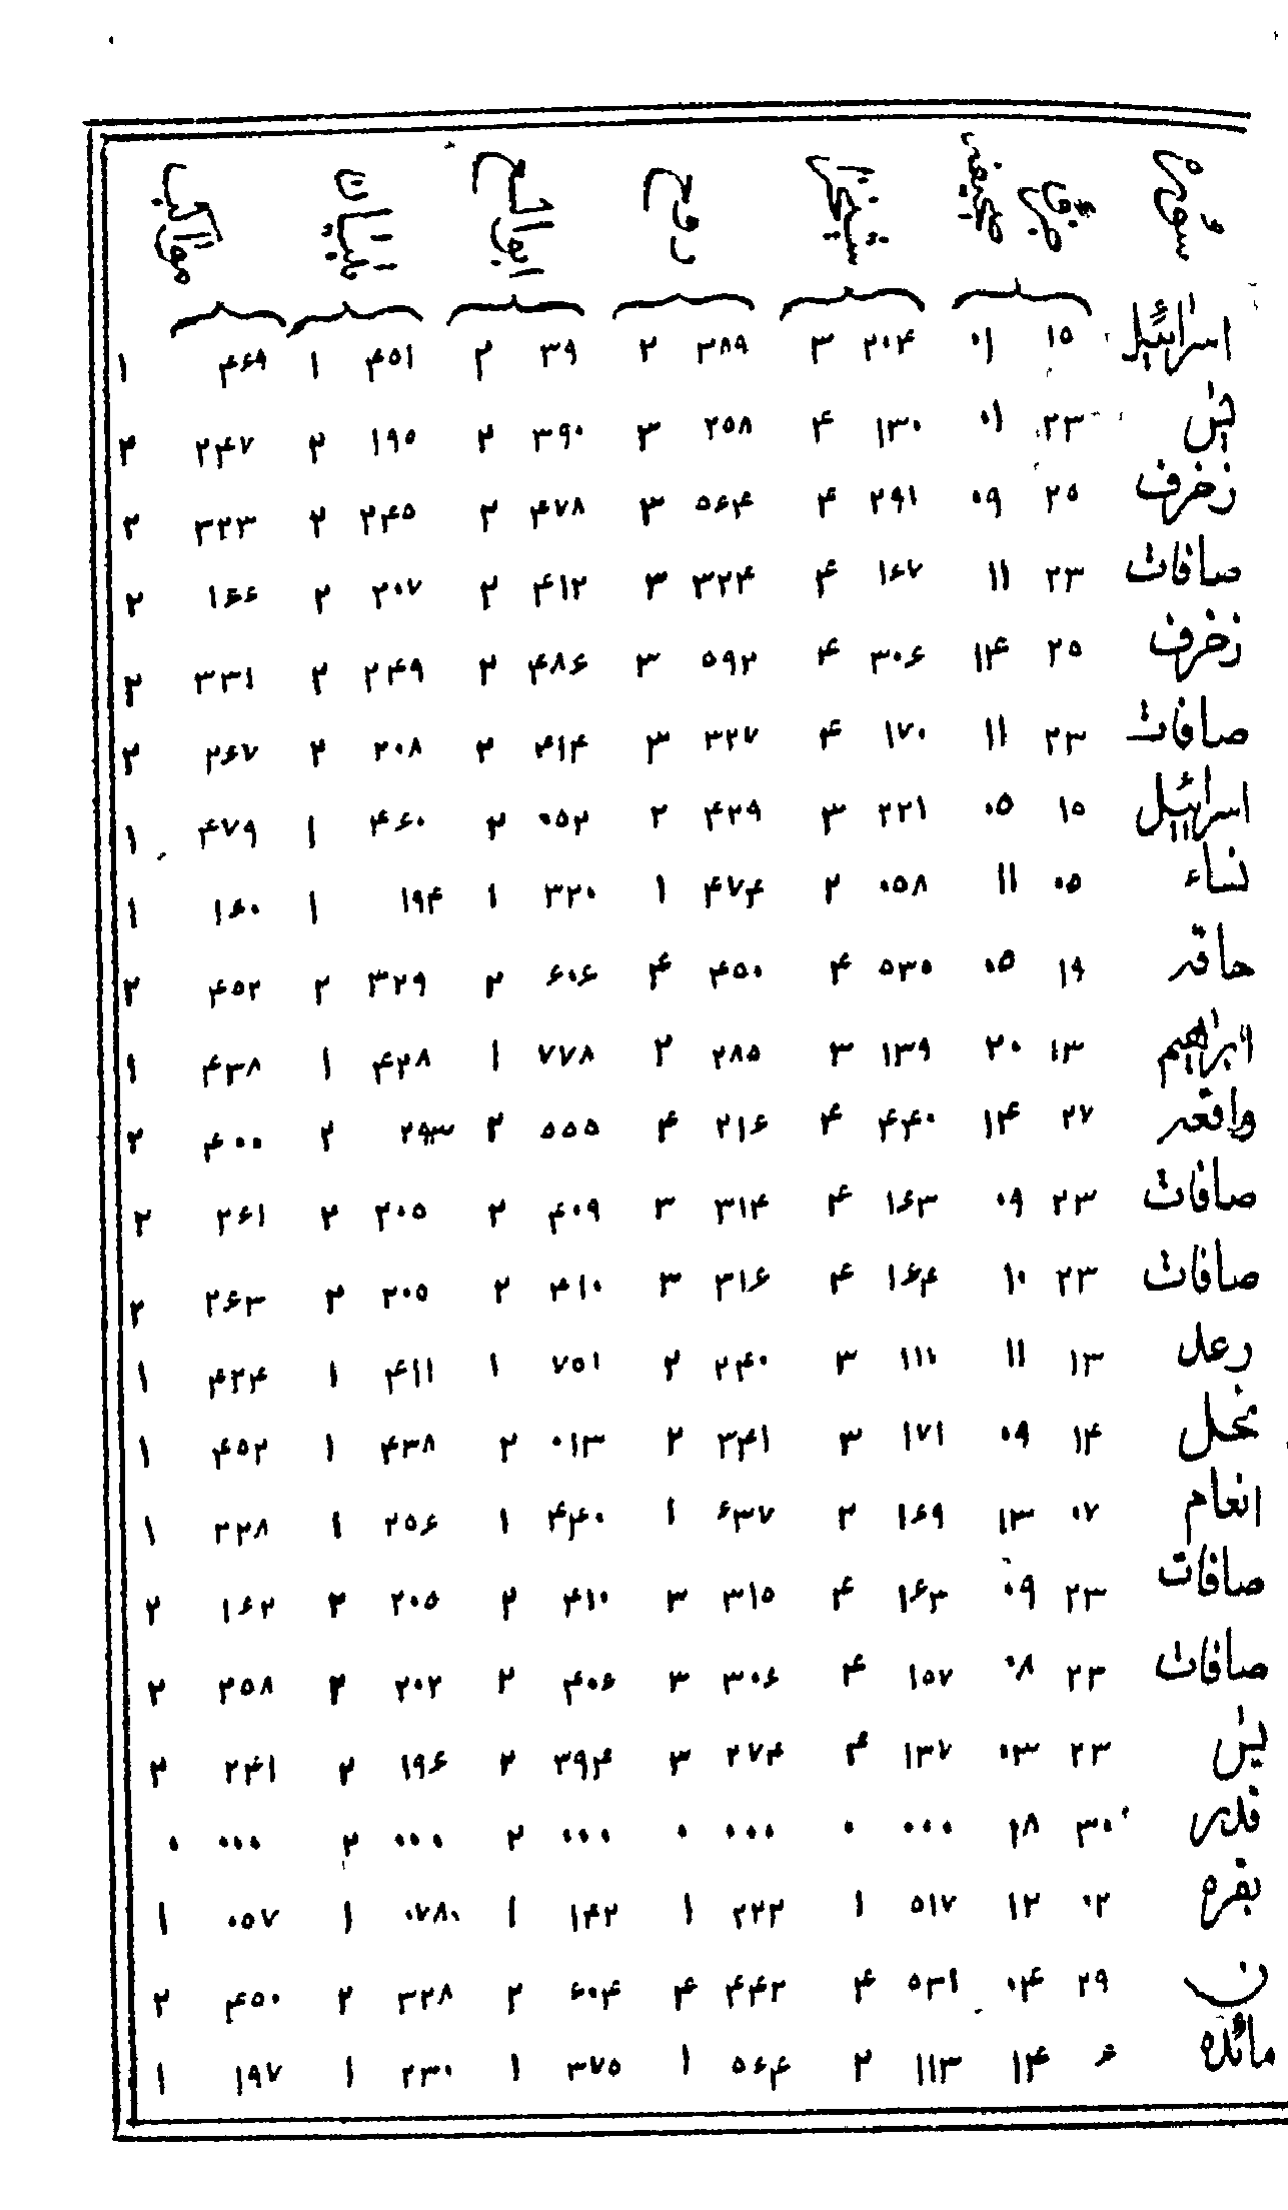 اسرائیل ۱۵ ۰۱ ۲۰۴ ۳ ۳۸۹ ۲ ۳۹ ۲ ۴۵۱ ۱ ۴۶۹ ۱
یٰس ۲۳ ۰۱ ۱۳۰ ۴ ۲۵۸ ۳ ۳۹۰ ۲ ۱۹۵ ۲ ۲۴۷ ۲
زخرف ۲۵ ۰۹ ۲۹۱ ۴ ۵۶۴ ۳ ۴۷۸ ۲ ۲۴۵ ۲ ۳۲۳ ۲
صافات ۲۳ ۱۱ ۱۶۷ ۴ ۳۲۴ ۳ ۴۱۲ ۲ ۲۰۷ ۲ ۱۶۶ ۲
زخرف ۲۵ ۱۴ ۳۰۶ ۴ ۵۹۲ ۳ ۴۸۶ ۲ ۲۴۹ ۲ ۳۳۱ ۲
صافات ۲۳ ۱۱ ۱۷۰ ۴ ۳۲۷ ۳ ۴۱۴ ۲ ۲۰۸ ۲ ۲۶۷ ۲
اسرائیل ۱۵ ۰۵ ۲۲۱ ۳ ۴۲۹ ۲ ۰۵۲ ۲ ۴۶۰ ۱ ۴۷۹ ۱
نساء ۰۵ ۱۱ ۰۵۸ ۲ ۴۷۴ ۱ ۳۲۰ ۱ ۱۹۴ ۱ ۱۶۰ ۱
حاقہ ۱۹ ۰۵ ۵۳۰ ۴ ۴۵۰ ۴ ۶۰۶ ۲ ۳۲۹ ۲ ۴۵۲ ۲
ابراھیم ۱۳ ۲۰ ۱۳۹ ۳ ۲۸۵ ۲ ۷۷۸ ۱ ۴۲۸ ۱ ۴۳۸ ۱
واقعہ ۲۷ ۱۴ ۴۴۰ ۴ ۲۱۶ ۴ ۵۵۵ ۲ ۲۹۳ ۲ ۴۰۰ ۲
صافات ۲۳ ۰۹ ۱۶۳ ۴ ۳۱۴ ۳ ۴۰۹ ۲ ۲۰۵ ۲ ۲۶۱ ۲
صافات ۲۳ ۱۰ ۱۶۴ ۴ ۳۱۶ ۳ ۴۱۰ ۲ ۲۰۵ ۲ ۲۶۳ ۲
رعد ۱۳ ۱۱ ۱۱۱ ۳ ۲۴۰ ۲ ۷۵۱ ۱ ۴۱۱ ۱ ۴۲۴ ۱
نحل ۱۴ ۰۹ ۱۷۱ ۳ ۳۴۱ ۲ ۰۱۳ ۲ ۴۳۸ ۱ ۴۵۲ ۱
انعام ۰۷ ۱۳ ۱۶۹ ۲ ۶۳۷ ۱ ۴۴۰ ۱ ۲۵۶ ۱ ۲۲۸ ۱
صافات ۲۳ ۰۹ ۱۶۳ ۴ ۳۱۵ ۳ ۴۱۰ ۲ ۲۰۵ ۲ ۱۶۲ ۲
صافات ۲۳ ۰۸ ۱۵۷ ۴ ۳۰۶ ۳ ۴۰۶ ۲ ۲۰۲ ۲ ۲۵۸ ۲
یٰس ۲۳ ۰۳ ۱۳۷ ۴ ۲۷۴ ۳ ۳۹۴ ۲ ۱۹۶ ۲ ۲۴۱ ۲
قدر ۳۰ ۱۸ ۰۰۰ ۰ ۰۰۰ ۰ ۰۰۰ ۲ ۰۰۰ ۲ ۰۰۰ ۰
بقره ۰۲ ۱۲ ۵۱۷ ۱ ۲۲۲ ۱ ۱۴۲ ۱ ۰۷۸۰ ۱ ۰۵۷ ۱
ن ۲۹ ۰۴ ۵۳۱ ۴ ۴۴۲ ۴ ۶۰۴ ۲ ۳۲۸ ۲ ۴۵۰ ۲
مائده ۶ ۱۴ ۱۱۳ ۲ ۵۶۴ ۱ ۳۷۵ ۱ ۲۳۰ ۱ ۱۹۷ ۱